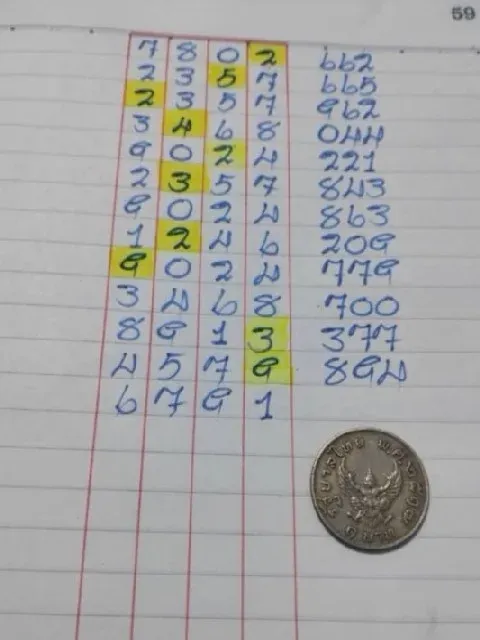 59
7 8 0 2 662
2 3 5 7 665
2 3 5 7 962
3 4 6 8 044
9 0 2 4 221
2 3 5 7 843
9 0 2 4 863
1 2 4 6 209
9 0 2 4 779
3 4 6 8 700
8 9 1 3 377
4 5 7 9 894
6 7 9 1
รัฐบาลไทย พ.ศ.๒๕๑๗
๑ บาท